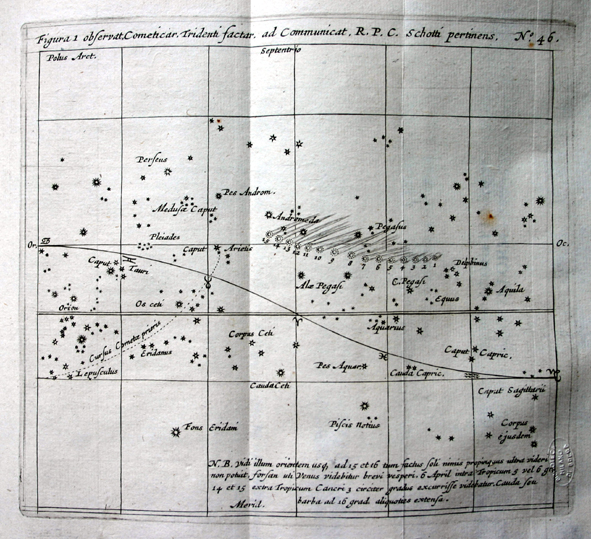 Figura 1 observat. Cometicar. Tridenti factar. ad Communicat. R. P. C. Schotti pertinens. No. 46.
Polus Arct.
Septentrio
Perseus
Pes Androm.
Medusæ Caput
Andromeda
Pegasus
Pleiades
Or.
Caput Arietis
Oc.
14 13 12 11 10 9 8 7 6 5 4 3 2 1
Caput Tauri
Delphinus
Ala Pegasi
C. Pegasi
Aquila
Equus
Orion
Os ceti
Cursus Cometæ prioris
Corpus Ceti
Aquarius
Eridanus
Caput Capric.
Lepusculus
Pes Aquar.
Cauda Capric.
Cauda Ceti
Caput Sagittarii
Fons Eridani
Piscis notius
Corpus ejusdem
N. B. Vidi illum orientem usq, ad 15 et 16 tum factus soli nimis propinquus ultra videri
non potuit. forsan uti Venus videbitur brevi vesperi. 6 April intra Tropicum 5 vel 6 gr.
14 et 15 extra Tropicum Cancri 3 circiter gradus excurrisse videbatur. Cauda seu
barba ad 16 grad. aliquoties extensa.
Merid.